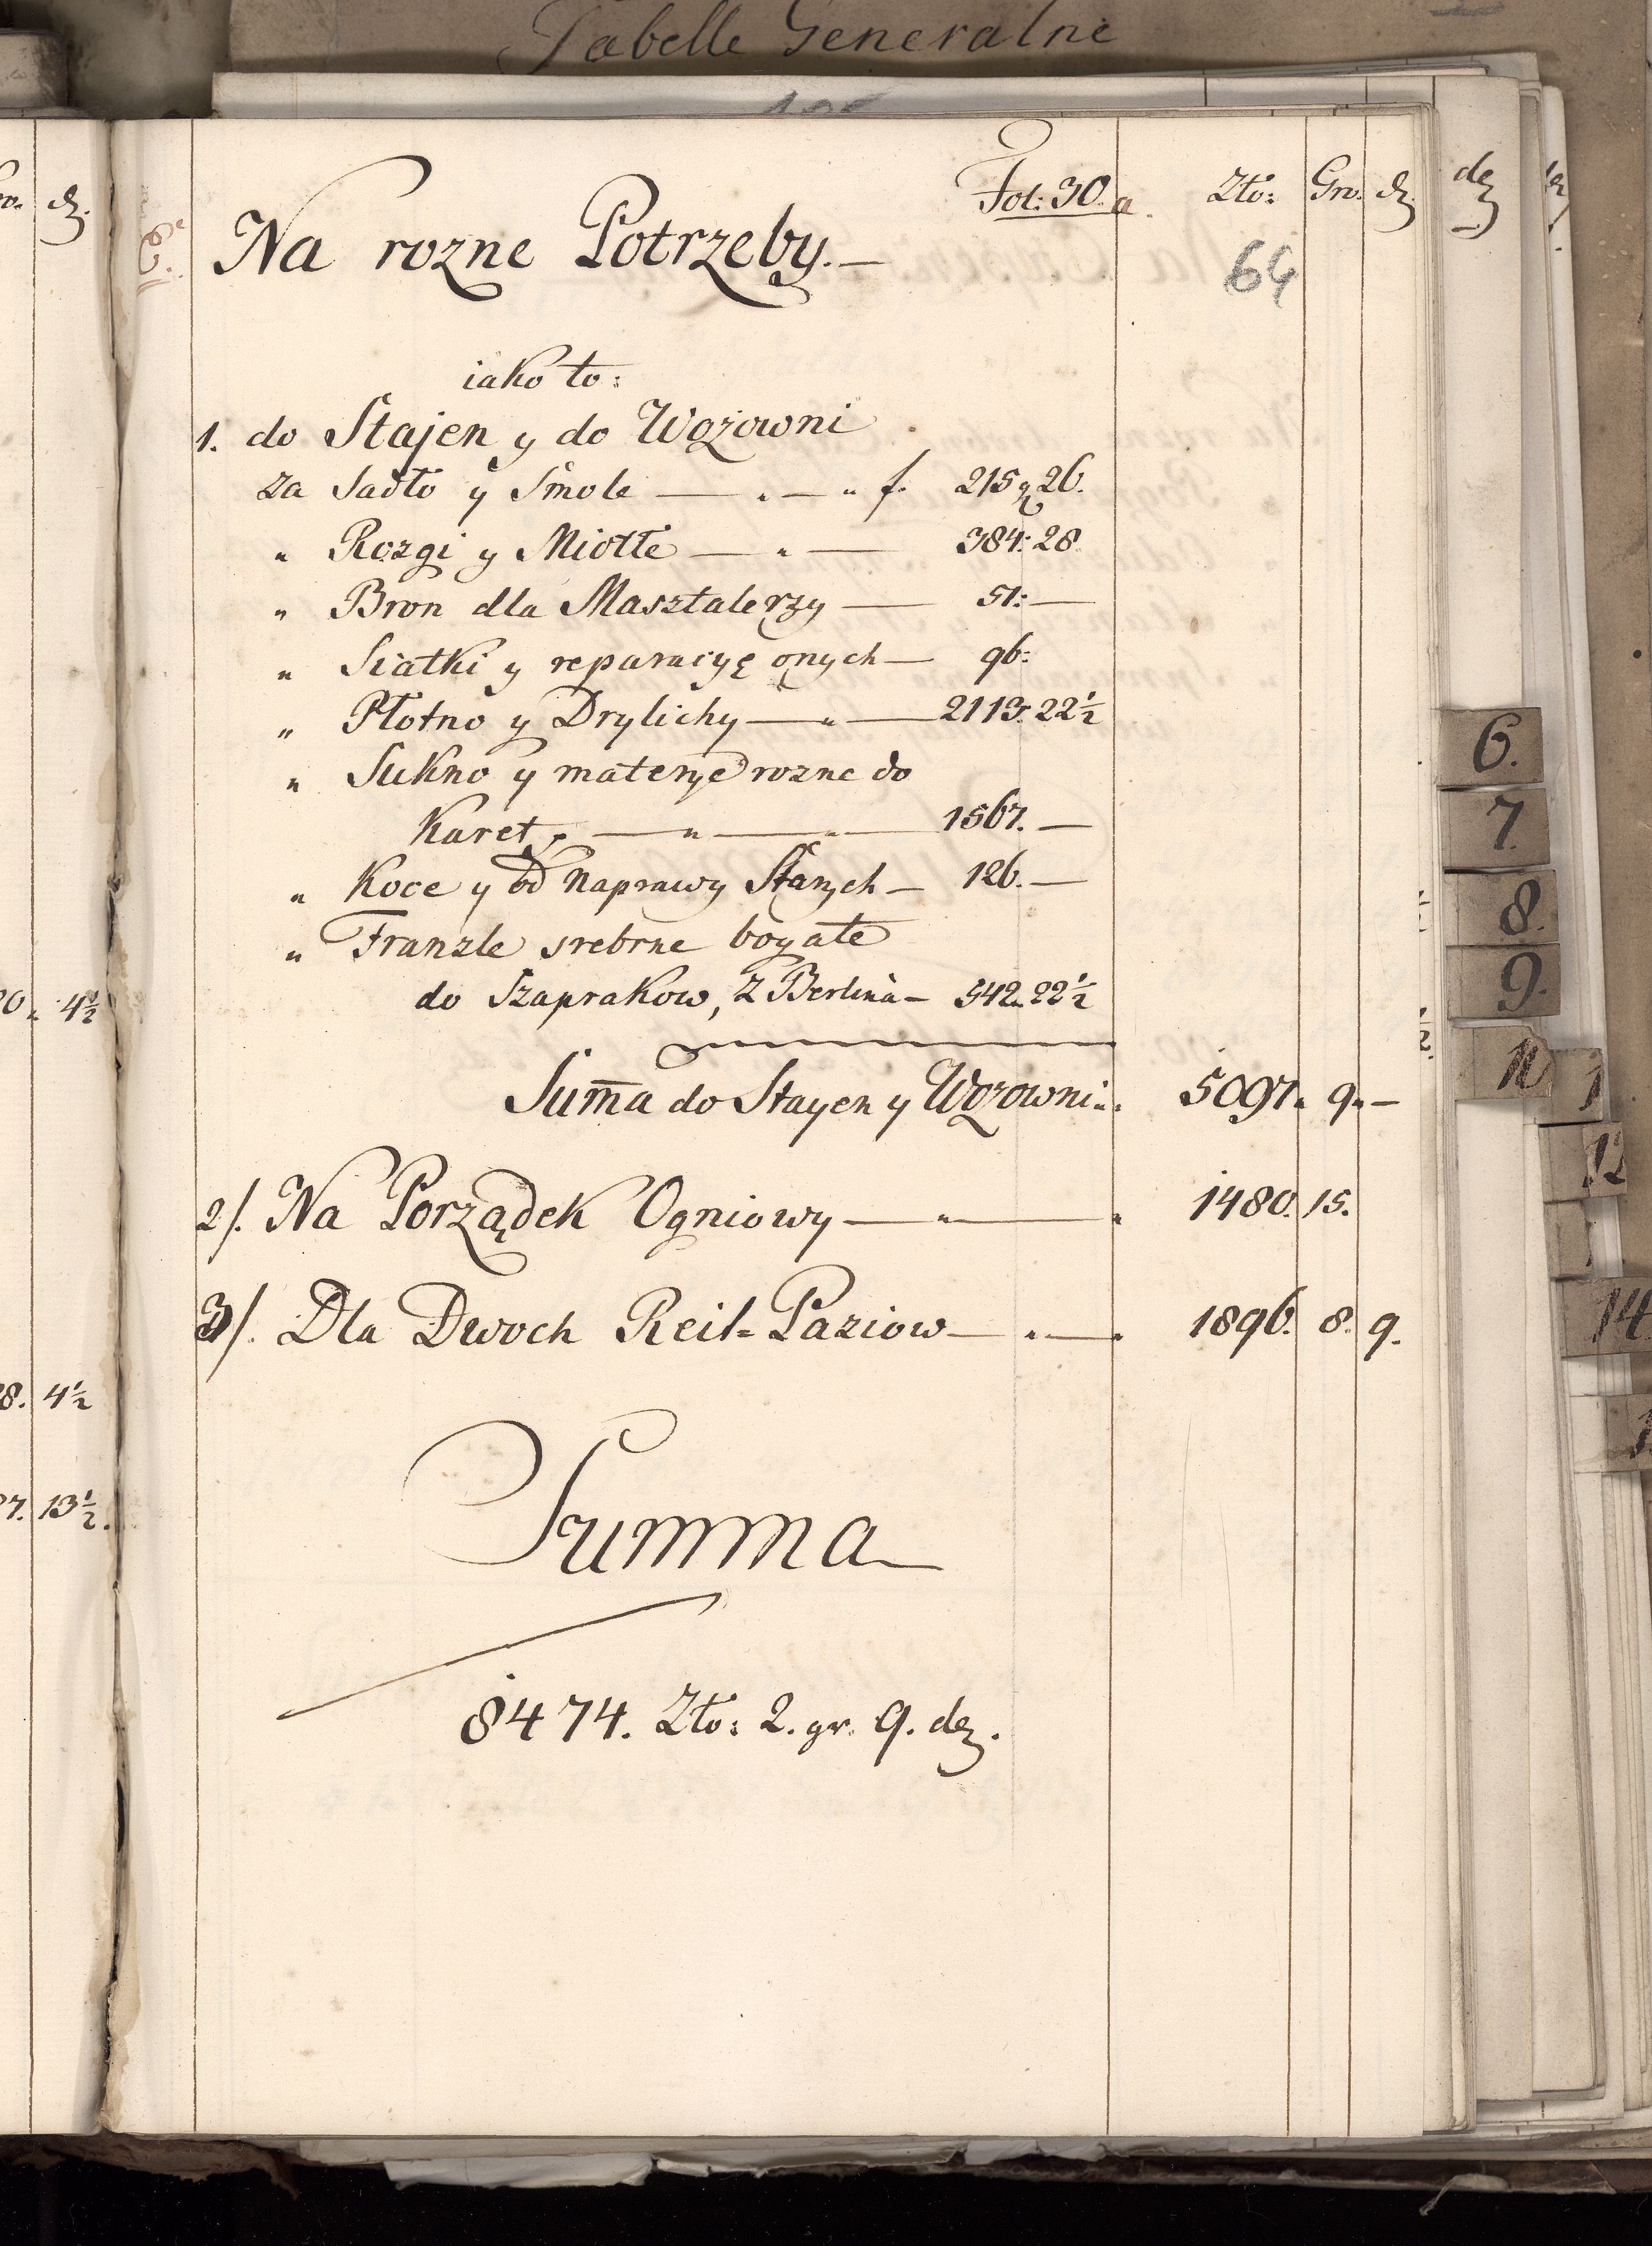 Tabelle Generalne
Fol: 30. a. Zło: Gro. dz.
6. Na rozne Potrzeby.—
64
iako to:
1. do Stajen y do Wozowni
za Sadło y Smołe — „ — „ f. 215 „ 26.
„ Rozgi y Miotłe — „ — 384: 28.
„ Bron dla Masztalerzy — 51: —
„ Siatki y reparacyę onych — 96:
„ Płotno y Drylichy — „ — 2113: 22½
„ Sukno y materye rozne do
Karet, — „ — „ — 1567. —
„ Koce y od Naprawy Starych — 126. —
„ Franzle srebrne bogate
do Szaprakow, z Berlina — 542 „ 22½
Sum̄a do Stayen y Wozowni „. 5097 „ 9 „ —
2/. Na Porządek Ogniowy — „ — „ 1480. 15.
3/. Dla Dwoch Reit=Paziow — „ — „ 1896. 8. 9.
Summa
8474. Zło: 2. gr. 9. dz.
20 „ 4½
28. 4½
27. 13½.
6.
7.
8.
9.
12
14